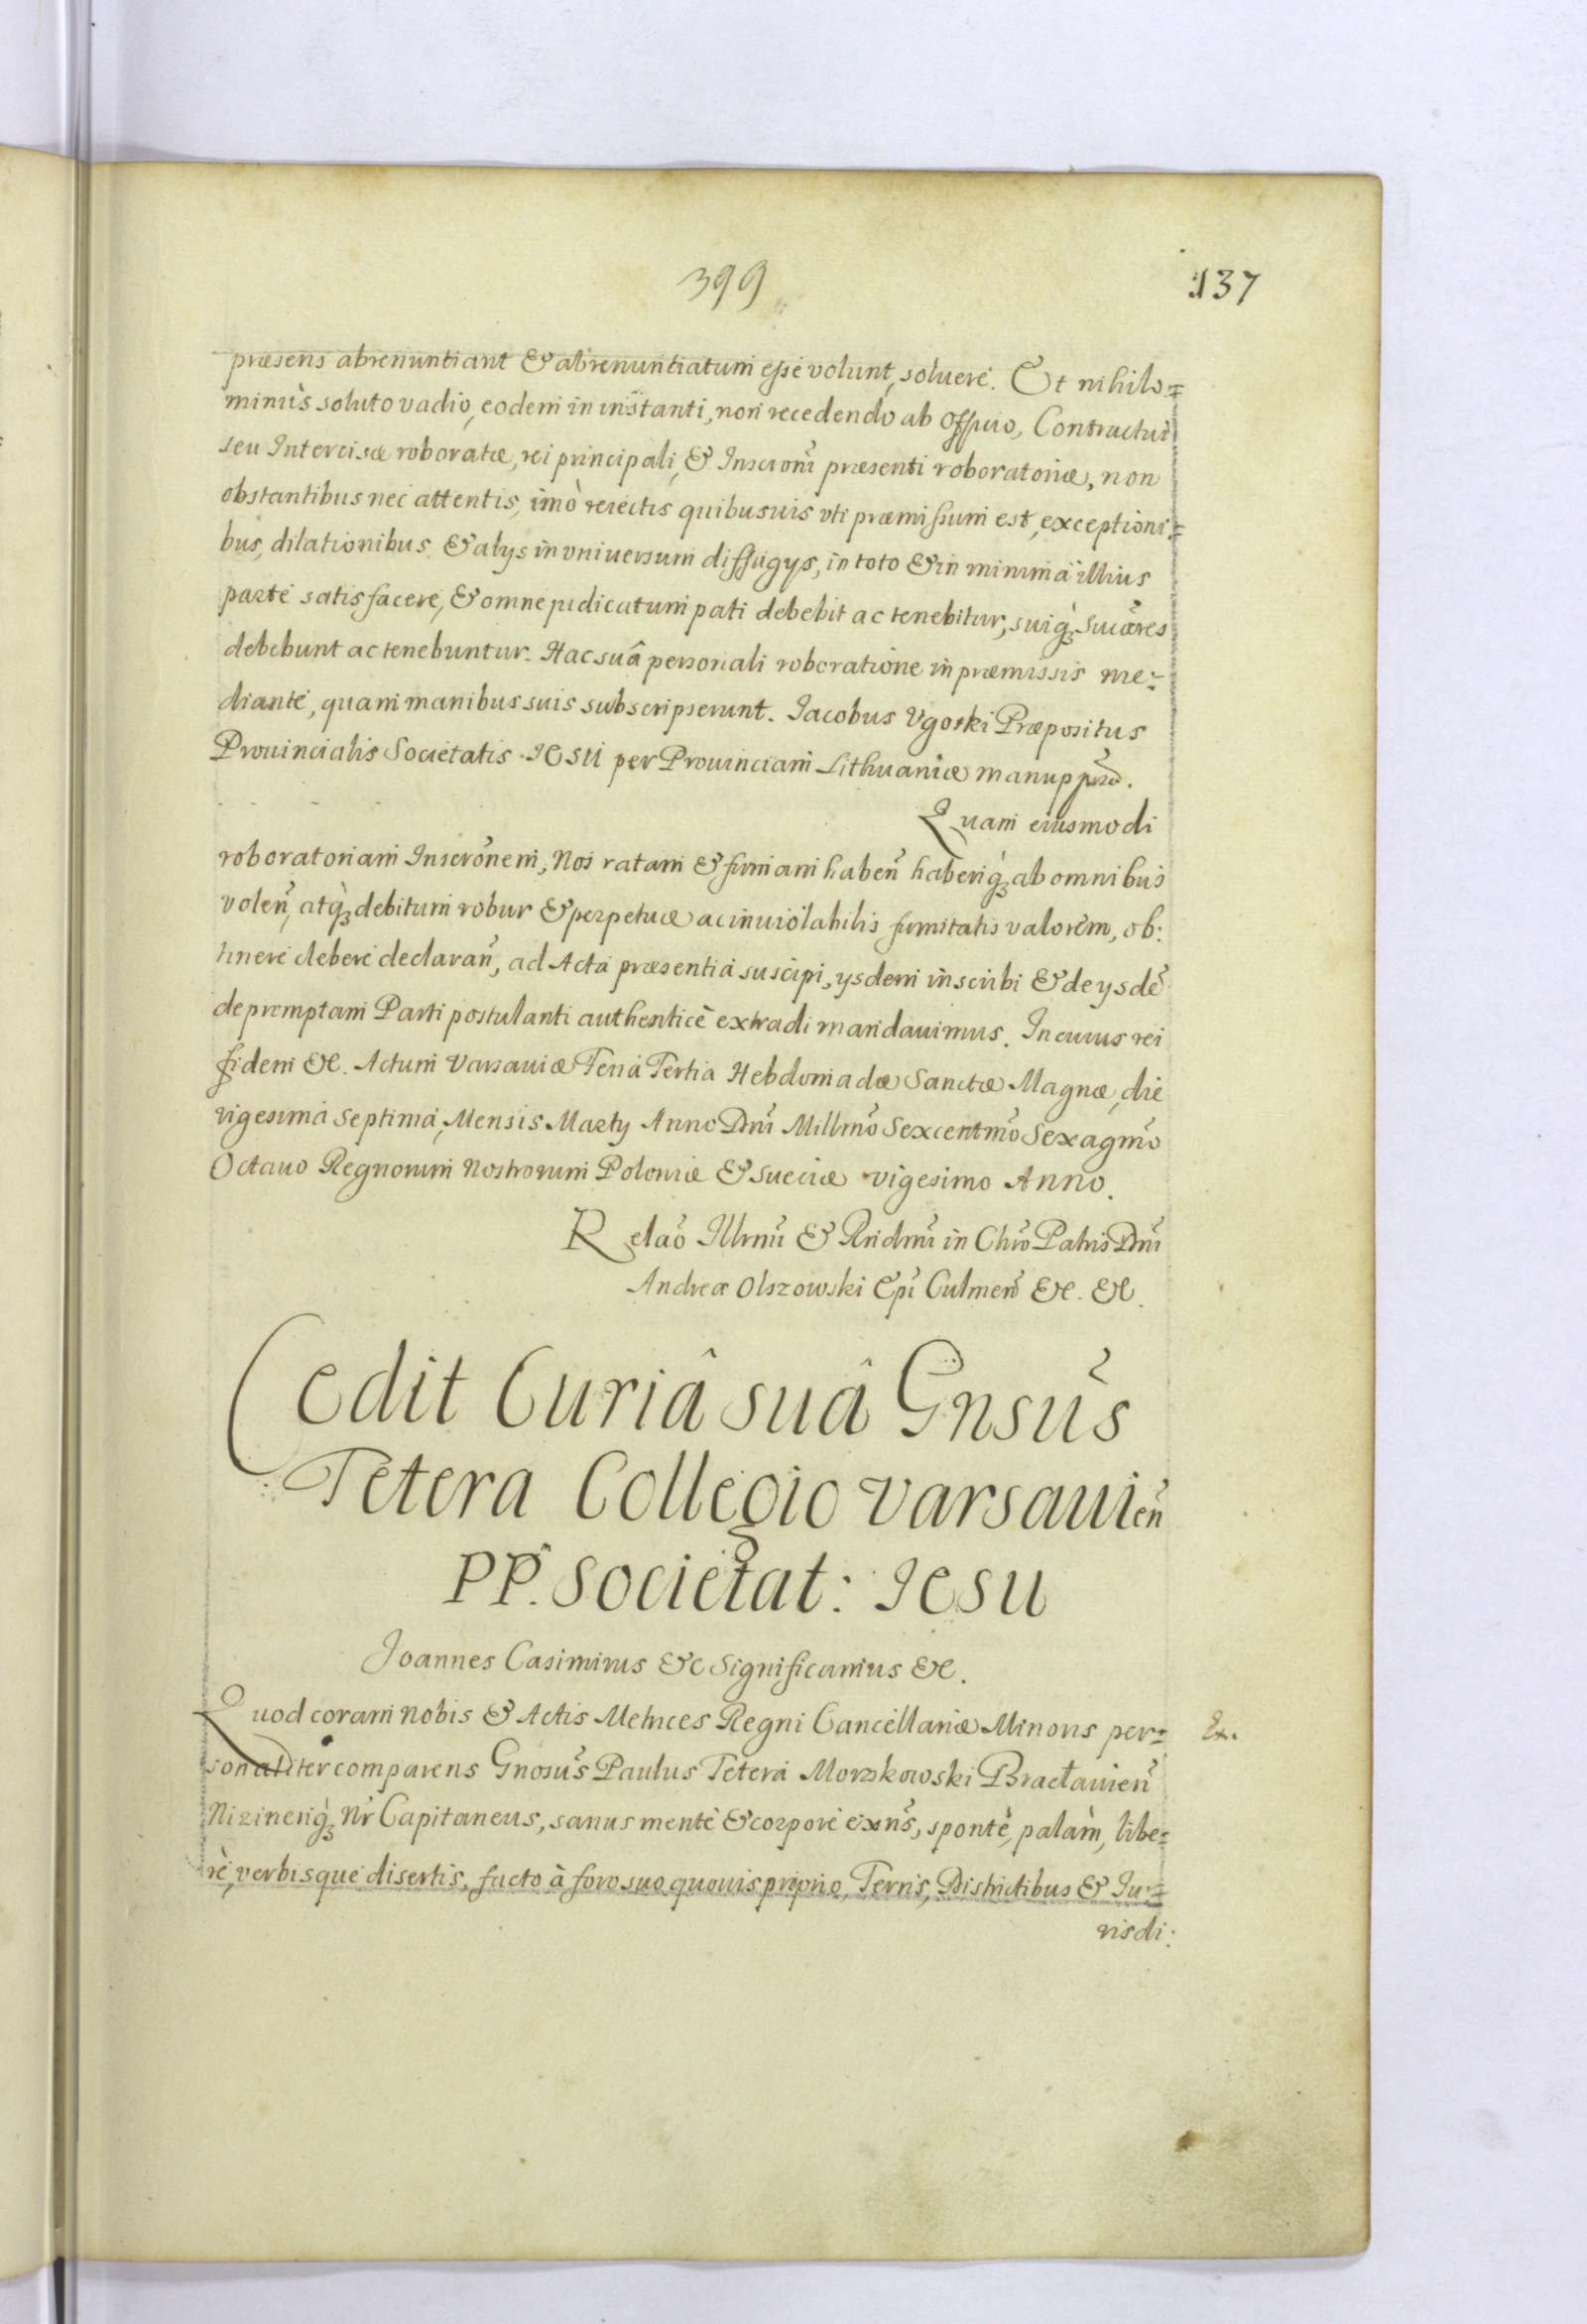 399
137
præsens abrenuntiant & abrenuntiatum esse volunt, soluere. Et nihilo=
minùs soluto vadio, eodem in instanti, non recedendo ab Officio, Contractui
seu Intercisæ roboratæ, rei principali, & Inscrõni præsenti roboratoriæ, non
obstantibus nec attentis, imò reiectis quibusuis vti præmissum est, exceptioni=
bus, dilationibus & alys in vniuersum diffugys, in toto & in minima illius
parte satisfacere, & omne iudicatum pati debebit ac tenebitur, suiq̀ʒ Succõres
debebunt ac tenebuntur. Hac suâ personali roboratione in præmissis me=
diante, quam manibus suis subscripserunt. Iacobus Vgoski Præpositus
Prouincialis Societatis IESU per Prouinciam Lithuaniæ manu pp̃ria.
Quam eiusmodi
roboratoriam Inscrõnem, Nos ratam & firmam habeñ haberiq̀ʒ ab omnibus
voleñ, atq̀ʒ debitum robur & perpetuæ ac inuiolabilis firmitatis valorem, ob:
tinere debere declarañ, ad Acta præsentia suscipi, ysdem inscribi & de ysdẽ
depromptam Parti postulanti authenticè extradi mandauimus. In cuius rei
fidem &c. Actum Varsauiæ Feria Tertia Hebdomadæ Sanctæ Magnæ, die
vigesima septima, Mensis Marty Anno Dñi Millmõ Sexcentmõ Sexagmõ
Octauo Regnorum Nostrorum Poloniæ & Sueciæ vigesimo Anno.
Relaõ Illrmi & Rndmi in Chrõ Patris Dñi
Andreæ Olszowski Epĩ Culmeñ &c. &c.
Cedit Curiâ suâ Gnsũs
Tetera Collegio Varsauieñ
PP. Societat: Iesu
Joannes Casimirus &c Significamus &c.
Quod coram Nobis & Actis Metrices Regni Cancellariæ Minoris per=
Ex.
sonaliter comparens Gnosũs Paulus Tetera Morzkowski Bracłauieñ
Nizineñq̀ʒ Nr̃ Capitaneus, sanus mente & corpore exñs, spontè, palàm, libe=
rè, verbisque disertis, facto à foro suo quouis proprio, Terris, Districtibus & Iu=
risdi: